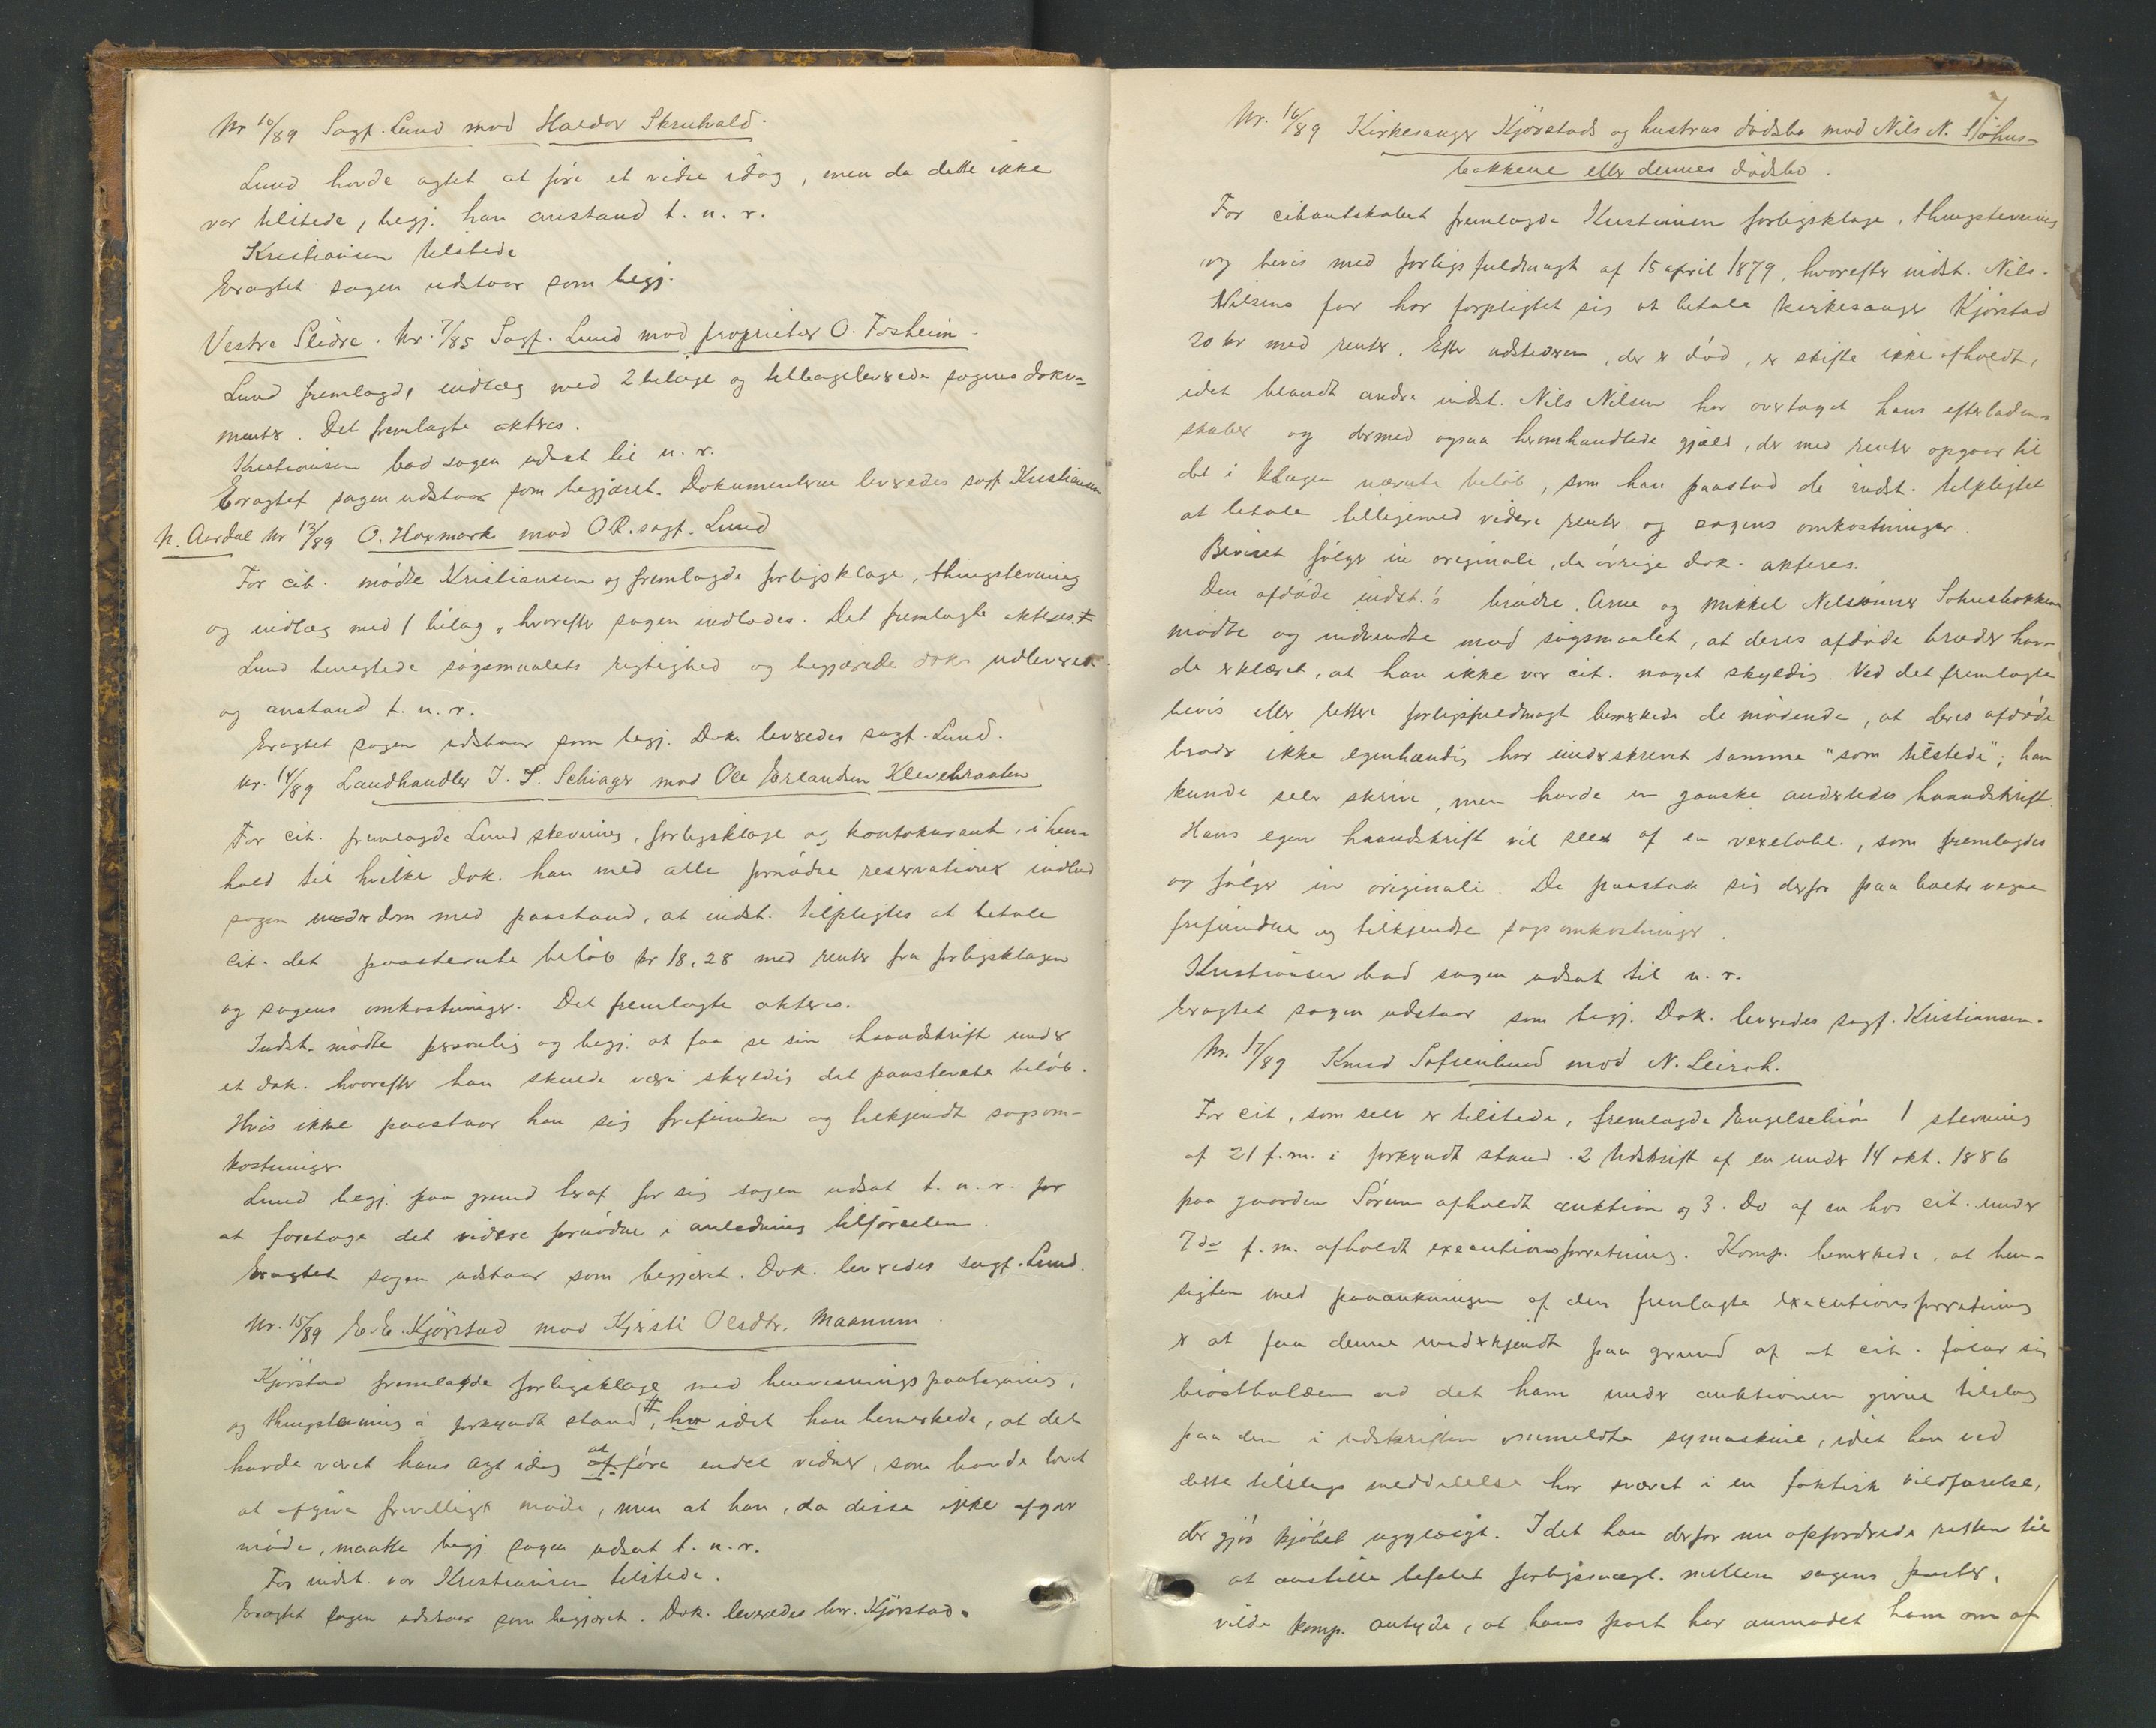 Nr 10/89 Sagf. Lund mod Haldor Skrulvald.
Lund havde agtet at føre et vidne idag, men da dette ikke
var tilstede, begj. han anstand t. n. r.
Kristiansen tilstede
Eragtet sagen udstaar som begj.
Vestre Slidre. Nr. 7/85 Sagf. Lund mod proprietær O. Fosheim.
Lund fremlagde indlæg med 2 bilage og tilbageleverede sagens doku-
menter. Det fremlagte akteres.
Kristiansen bad sagen udsat til n. r.
Eragtet sagen udstaar som begjæret. Dokumenterne leveredes sagf. Kristiansen
N. Aardal Nr 13/89 O. Haxmark mod O.R.sagf. Lund
For cit. mødte Kristiansen og fremlagde forligsklage, thingstevning
og indlæg med 1 bilag, hvorefter sagen indlades. Det fremlagte akteres.
Lund benegtede søgsmaalets rigtighed og begjærede dok. udleveret
og anstand t. n. r.
Eragtet sagen udstaar som begj. Dok. leveredes sagf. Lund.
Nr. 14/89 Landhandler J. S. Schiager mod Ole Erlandsen Klevebraaten
For cit. fremlagde Lund stevning, forligsklage og kontokurant, i hen-
hold til hvilke dok. han med alle fornødne reservationer indlod
sagen under dom med paastand, at indst. tilpligtes at betale
cit. det paastevnte beløb kr 18,28 med renter fra forligsklagen
og sagens omkostninger. Det fremlagte akteres.
Indst. mødte personlig og begj. at faa se sin haandskrift under
et dok. hvorefter han skulde være skyldig det paastevnte beløb.
Hvis ikke paastaar han sig frifunden og tilkjendt sagsom-
kostninger.
Lund begj. paa grund heraf for sig sagen udsat t. n. r. for
at foretage det videre fornødne i anledning tilførselen.
Eragtet sagen udstaar som begjæret. Dok. leveredes sagf. Lund.
Nr. 15/89 E. E. Kjørstad mod Kjersti Olsdtr. Maanum.
Kjørstad fremlagde forligsklage med henvisningspaategning,
og thingstevning i forkyndt stand #, hvo idet han bemerkede, at det
havde været hans agt idag at føre endel vidner, som havde lovet
at afgive frivilligt møde, men at han, da disse ikke afgav
møde, maatte begj. sagen udsat t. n. r.
For indst. var Kristiansen tilstede.
Eragtet sagen udstaar som begjæret. Dok. leveredes hr. Kjørstad.
7
Nr. 16/89 Kirkesanger Kjørstads og hustrus dødsbo mod Nils N. Søhus-
bakkene eller dennes dødsbo.
For citantskabet fremlagde Kristiansen forligsklage, thingstevning
og bevis med forligsfuldmagt af 15 april 1879, hvorefter indst. Nils
Nilsens far har forpligtet sig at betale kirkesanger Kjørstad
20 kr med renter. Efter udstederen, der er død, er skifte ikke afholdt,
idet blandt andre indst. Nils Nilsen har overtaget hans efterladen-
skaber og dermed ogsaa heromhandlede gjæld, der med renter opgaar til
det i klagen nævnte beløb, som han paastod de indst. tilpligtet
at betale tilligemed videre renter og sagens omkostninger.
Beviset følger in originali, de øvrige dok. akteres.
Den afdøde indst.'s brødre, Arne og Mikkel Nilsønner Søhusbakken
mødte og indvendte mod søgsmaalet, at deres afdøde broder hav-
de erklæret, at han ikke var cit. noget skyldig. Ved det fremlagte
bevis eller rettere forligsfuldmagt bemerkede de mødende, at deres afdøde
broder ikke egenhændig har underskrevet samme "som tilstede"; han
kunde selv skrive, men havde en ganske anderledes haandskrift.
Hans egen haandskrift vil sees af en vexelobl., som fremlagdes
og følger in originali. De paastod sig derfor paa boets vegne
frifundne og tilkjendte sagsomkostninger.
Kristiansen bad sagen udsat til n. r.
Eragtet sagen udstaar som begj. Dok. leveredes sagf. Kristiansen.
Nr. 17/89 Knud Sofienlund mod N. Leirah.
For cit, som selv er tilstede, fremlagde Engelschiøn 1 stevning
af 21 f.m. i forkyndt stand. 2 Udskrift af en under 14 okt. 1886
paa gaarden Sørum afholdt auktion og 3. Do af en hos cit. under
7de f.m. afholdt executionsforretning. Komp. bemerkede, at hen-
sigten med paaankningen af den fremlagte executionsforretning
er at faa denne underkjendt paa grund af at cit. føler sig
brøstholden ved det ham under auktionen givne tilslag
paa den i udskriften ommeldte symaskine, idet han ved
dette tilslags meddelelse har været i en faktisk vildfarelse,
der gjør kjøbet ugyldigt. Idet han derfor nu opfordrede retten til
at anstille befalet forligsmægl. mellem sagens parter,
vilde komp. antyde, at hans part har anmodet ham om at